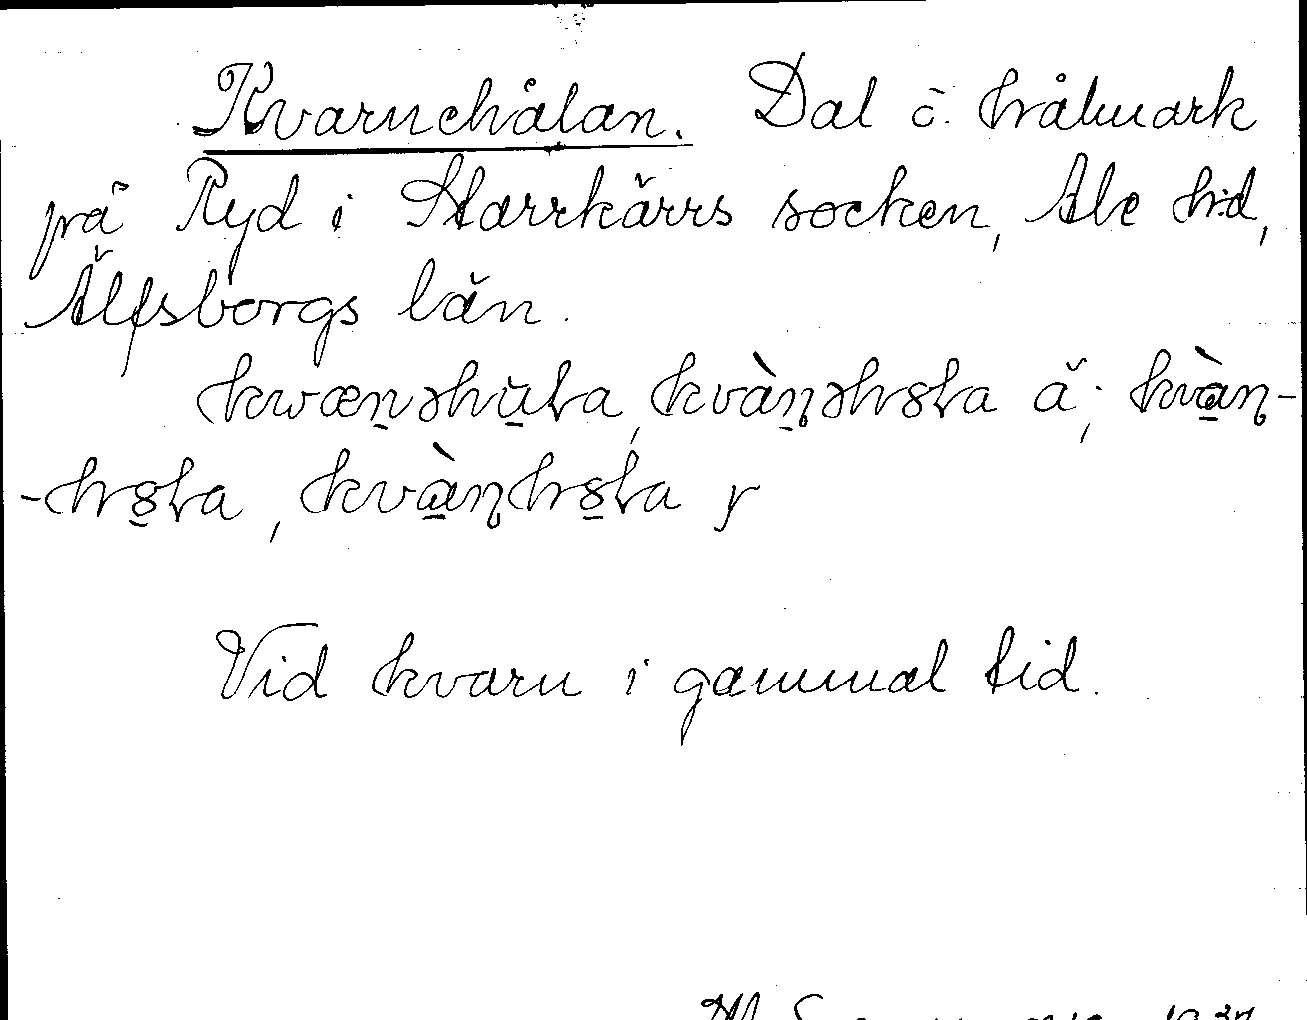 Kvarnehålan. Dal o. hålmark
på Ryd i Starrkärrs socken, Ale hd,
Älfsborgs län.
kwæn̠əhu̠ɫa, kvàn̠əhs̠ɫa ä; kvà̠ɳ-
-hs̠ɫa, kvà̠ɳhs̠ɫa y
Vid kvarn i gammal tid.